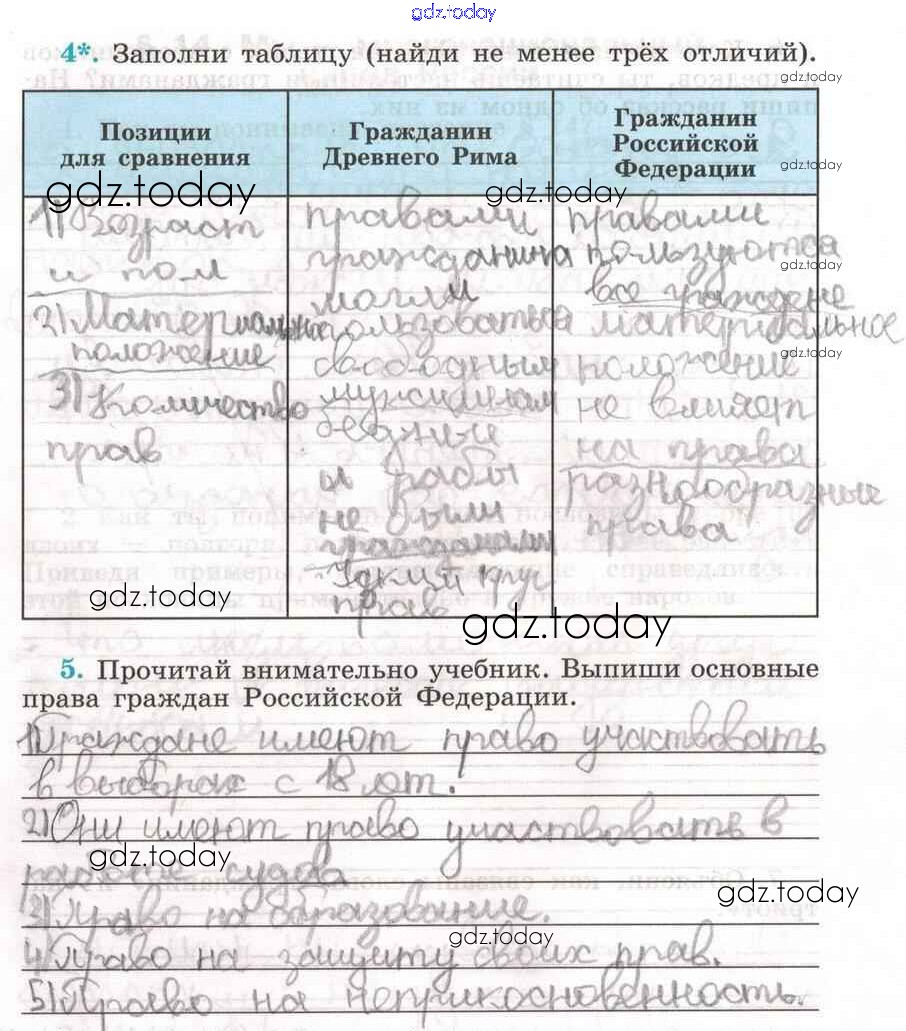 gdz.today
4*. Заполни таблицу (найди не менее трёх отличий).
gdz.today
Позиции
для сравнения
Гражданин
Древнего Рима
Гражданин
Российской
Федерации
gdz.today
gdz.today
gdz.today
1) Возраст
и пол
2) Материальное
положение
3) Количество
прав
правами
гражданина
могли
пользоваться
свободным
мужчинам
бедные
и рабы
не были
гражданами
прав
правами
пользуются
gdz.today
все граждане
материальное
gdz.today
положение
не влияет
на права
разнообразные
права
gdz.today
gdz.today
5. Прочитай внимательно учебник. Выпиши основные
права граждан Российской Федерации.
1) Граждане имеют право участвовать
в выборах с 18 лет.
2) Они имеют право участвовать в
gdz.today
работе судов
gdz.today
3) Право на образование.
gdz.today
4) Право на защиту своих прав.
5) Право на неприкосновенность.